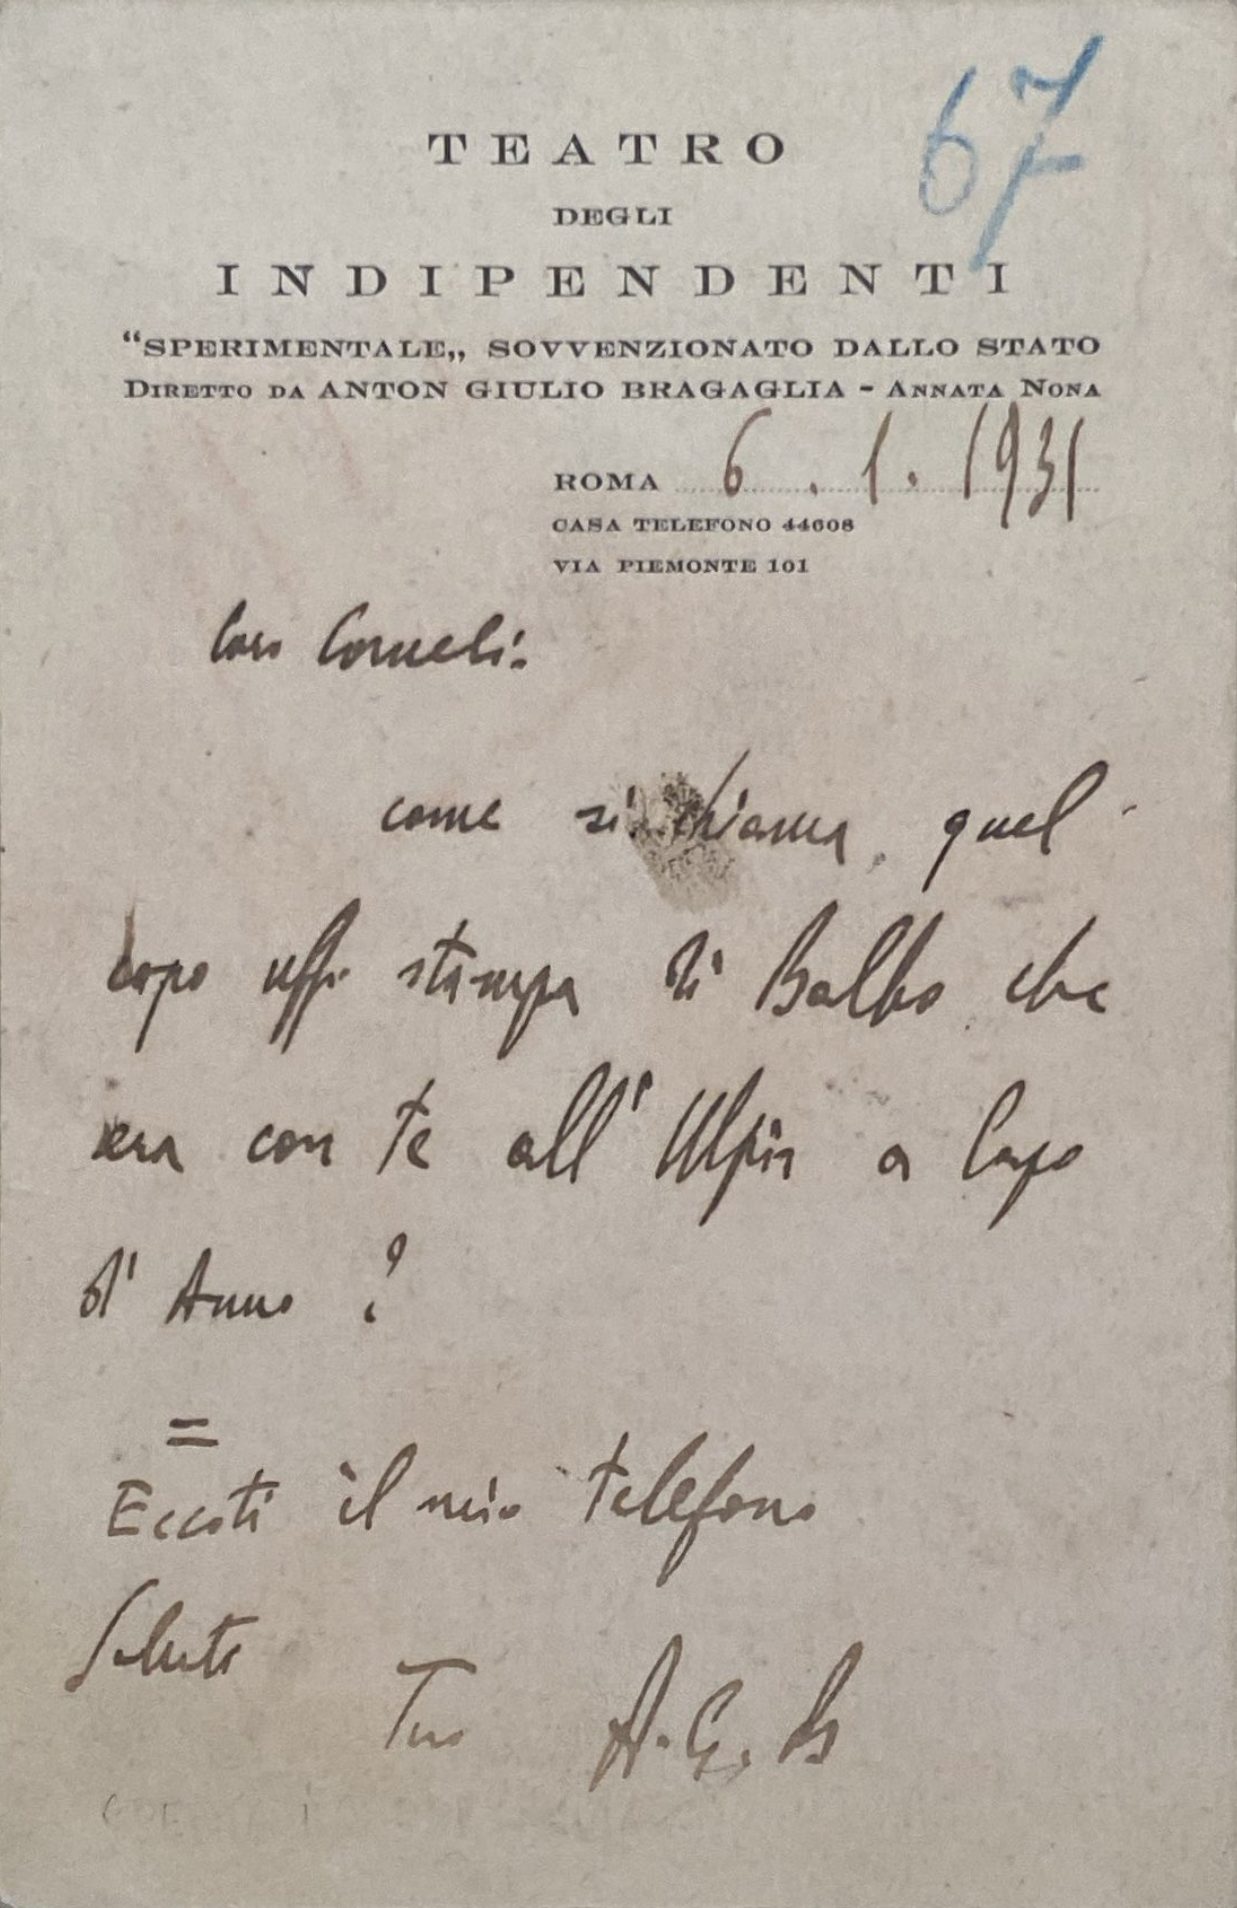 67
TEATRO
DEGLI
INDIPENDENTI
“SPERIMENTALE„ SOVVENZIONATO DALLO STATO
DIRETTO DA ANTON GIULIO BRAGAGLIA - ANNATA NONA
ROMA 6 . 1 . 1931
CASA TELEFONO 44608
VIA PIEMONTE 101
Caro Corneli:
come si chiama quel
capo uffi stampa di Balbo che
era con te all' Ulpia a Capo
d' Anno ?
=
Eccoti il mio telefono
Saluti
Tuo A. G. B